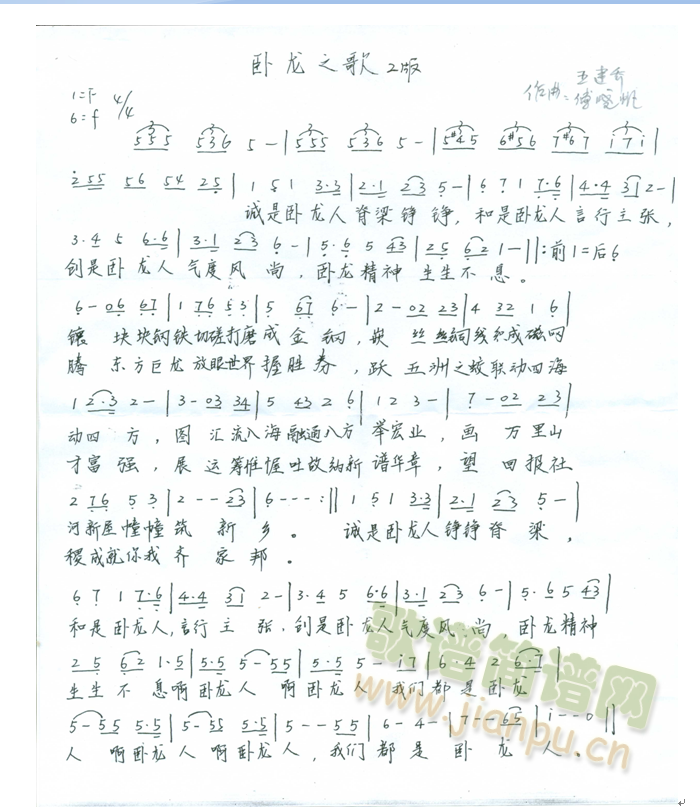 卧龙之歌 2版
1=F 4/4
6=f
作曲:
5 5 5 5 3 6 5 - | 5 5 5 5 3 6 5 - | 5 #4 5 6 #5 6 7 #6 7 i 7 i |
2 5 5 5 6 5 4 2 5 | 1 5 1 3·3 | 2·1 2 3 5 - | 6 7 1 7·6 | 4·4 3 1 2 - |
诚是卧龙人脊梁铮 铮，和是卧龙人言行主张，
3·4 5 6·6 | 3·1 2 3 6 - | 5·6 5 4 3 | 2 5 6 2 1 - ||: 前1=后6
创是卧龙人 气度风 尚，卧龙精神 生生不 息。
6 - 0 6 6 7 | 1 7 6 5 3 | 5 6 7 6 - | 2 - 0 2 2 3 | 4 3 2 1 6 |
镶 块块钢铁切磋打磨成 金 钢，嵌 丝丝铜线和成磁网
腾 东方巨龙 放眼世界握胜券，跃 五洲之蛟联动四海
1 2·3 2 - | 3 - 0 3 3 4 | 5 4 3 2 6 | 1 2 3 - | 7 - 0 2 2 3 |
动四 方，图 汇流入海融通八方 举宏业，画 万里山
才富 强，展 运筹惟幄吐故纳新 谱华章，望 回报社
2 7 6 5 3 | 2 - - 2 3 | 6 - - - :|| 1 5 1 3·3 | 2·1 2 3 5 - |
河新厦幢幢筑 新 乡。 诚是卧龙人铮铮脊 梁，
稷成就你我齐 家 邦。
6 7 1 7·6 | 4·4 3 1 2 - | 3·4 5 6·6 | 3·1 2 3 6 - | 5·6 5 4 3 |
和是卧龙人，言行 主 张，创是卧龙人气度风 尚，卧龙精神
2 5 6 2 1·5 | 5·5 5 - 5 5 | 5·5 5 - i 7 | 6·4 2 6·7 |
生生不 息啊卧龙人 啊卧龙人 我们都是卧龙
5 - 5 5 5·5 | 5 - 5 5 5·5 | 5 - - 5 5 | 6 - 4 - | 7 - - 6 5 | i - - 0 ||
人 啊卧龙人 啊卧龙人，我们都 是 卧 龙 人。
歌谱简谱网
www.jianpu.cn